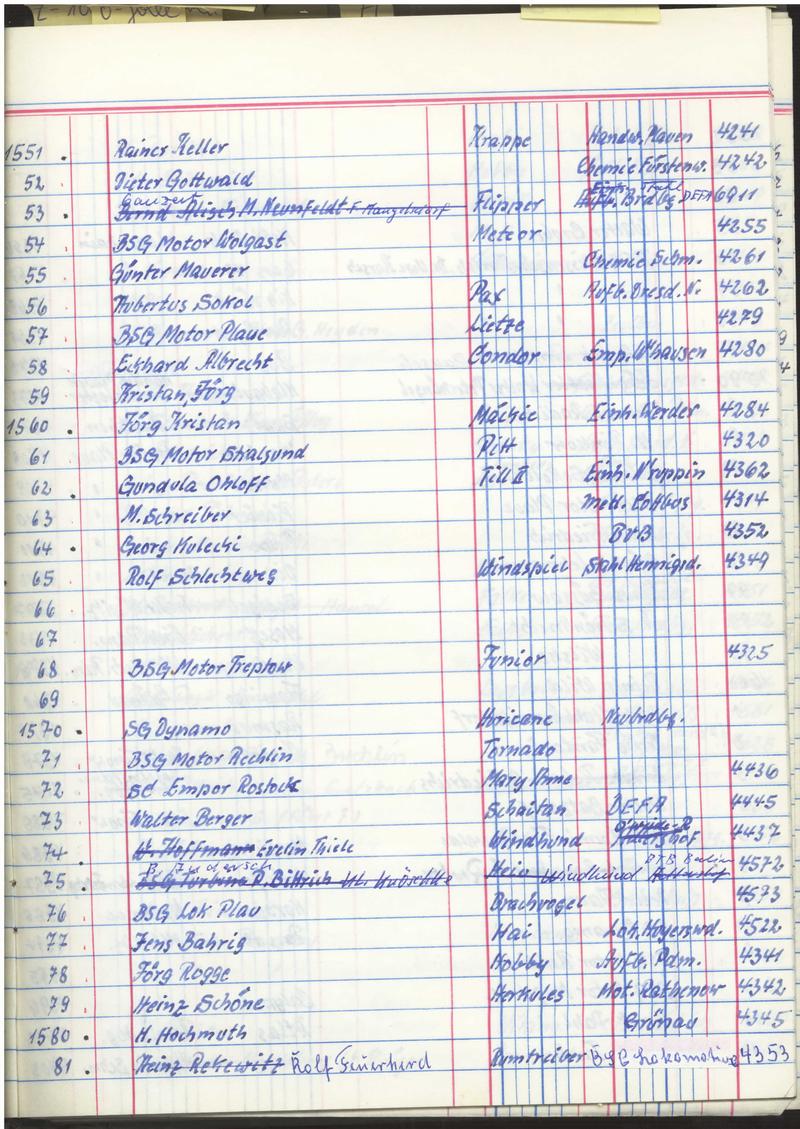 1551 . Rainer Keller Krappe Handw. Plauen 4241
52 Dieter Gottwald Chemie Fürstenw. 4242
Ganzer Stahl
53 . Bernd Alisch M. Neuenfeldt F. Mangelsdorf Flipper Aufb. Brdbg. DEFA 6911
54 . BSG Motor Wolgast Meteor 4255
55 . Günter Mauerer Chemie Schm. 4261
56 . Hubertus Sokol Pax Aufb. Dresd. N. 4262
57 . BSG Motor Plaue Lietze 4279
58 . Eckhard Albrecht Condor Emp. W'hausen 4280
59 Kristan, Jörg
1560 . Jörg Kristan Mäckie Einh. Werder 4284
61 . BSG Motor Stralsund Pitt 4320
62 . Gundula Ohloff Till II Einh. N'ruppin 4362
63 . M. Schreiber Med. Cottbus 4314
64 . Georg Kulecki BVB 4352
65 . Rolf Schlechtweg Windspiel Stahl Hennigsd. 4349
66
67
68 . BSG Motor Treptow Junior 4325
69
1570 . SG Dynamo Huricane Neubrdbg.
71 . BSG Motor Rechlin Tornado
72 . SC Empor Rostock Mary Anne 4436
73 . Walter Berger Schaitan DEFA 4445
74 . W. Hoffmann Evelin Thiele Windhund Adlershof 4437
BTB Berlin
75 . BSG Turbine P. Bittrich Hein Windhund 4572
76 . BSG Lok Plau Brachvogel 4573
77 . Jens Bahrig Hai Lok. Hoyerswd. 4522
78 . Jörg Rogge Hobby Aufb. Pdm. 4341
79 . Heinz Schöne Herkules Mot. Rathenow 4342
1580 . H. Hochmuth Grünau 4345
81 . Heinz Rekewitz Rolf Feuerherd Rumtreiber BSG Lokomotive 4353